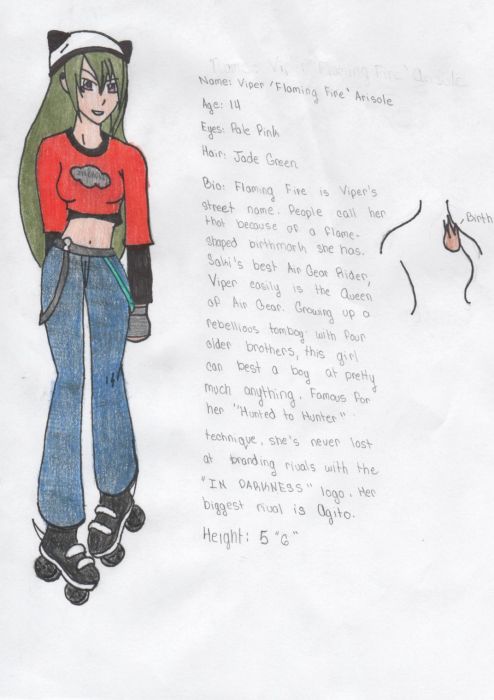 Name: Viper 'Flaming Fire' Arisole
Name: Viper 'Flaming Fire' Arisole
Age: 14
Eyes: Pale Pink
Hair: Jade Green
Bio: Flaming Fire is Viper's
street name. People call her
that because of a flame-
shaped birthmark she has.
Saki's best Air Gear Rider,
Viper easily is the Queen
of Air Gear. Growing up a
rebellious tomboy with four
older brothers, this girl
can best a boy at pretty
much anything. Famous for
her "Hunted to Hunter"
technique, she's never lost
at branding rivals with the
"IN DARKNESS" logo. Her
biggest rival is Agito.
Height: 5 "6"
Birth